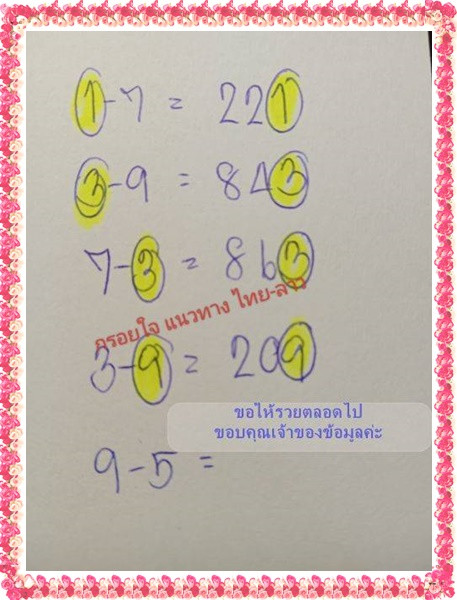 1-7 = 221
3-9 = 843
7-3 = 863
กรอยใจ แนวทาง ไทย-ลาว
3-9 = 209
ขอให้รวยตลอดไป
ขอบคุณเจ้าของข้อมูลค่ะ
9-5 =